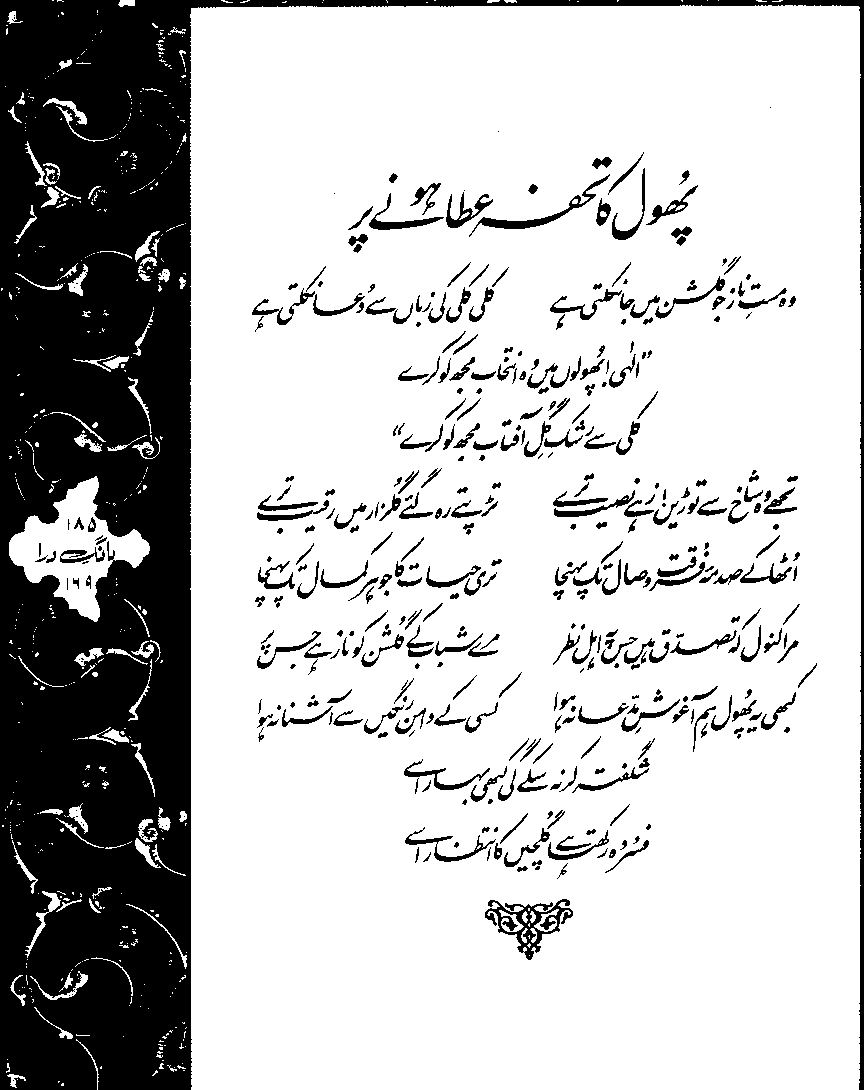 پھُول کا تحفہ عطا ہونے پر
وہ مستِ ناز جو گلشن میں جا نکلتی ہے کلی کلی کی زباں سے دُعا نکلتی ہے
”الٰہی! پھُولوں میں وہ انتخاب مجھ کو کرے
کلی سے رشکِ گُلِ آفتاب مجھ کو کرے“
تجھے وہ شاخ سے توڑیں! زہے نصیب ترے تڑپتے رہ گئے گلزار میں رقیب ترے
اُٹھا کے صدمۂ فُرقت وصال تک پہنچا تری حیات کا جوہر کمال تک پہنچا
مرا کنول کہ تصدّق ہیں جس پہ اہلِ نظر مرے شباب کے گلشن کو ناز ہے جس پر
کبھی یہ پھُول ہم آغوشِ مدّعا نہ ہوا کسی کے دامنِ رنگیں سے آشنا نہ ہوا
شگفتہ کر نہ سکے گی کبھی بہار اسے
فسُردہ رکھتا ہے گلچیں کا انتظار اسے
۱۸۵
بانگِ درا
۱۶۹